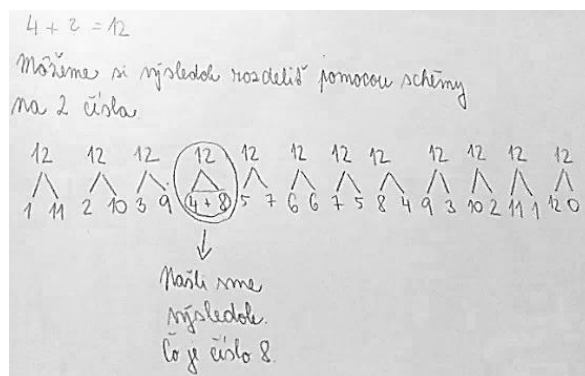 4 + ? = 12
Môžeme si výsledok rozdeliť pomocou schémy
na 2 čísla.
12 12 12 12 12 12 12 12 12 12 12 12
1 11 2 10 3 9 4 + 8 5 7 6 6 7 5 8 4 9 3 10 2 11 1 12 0
Našli sme
výsledok.
Čo je číslo 8.